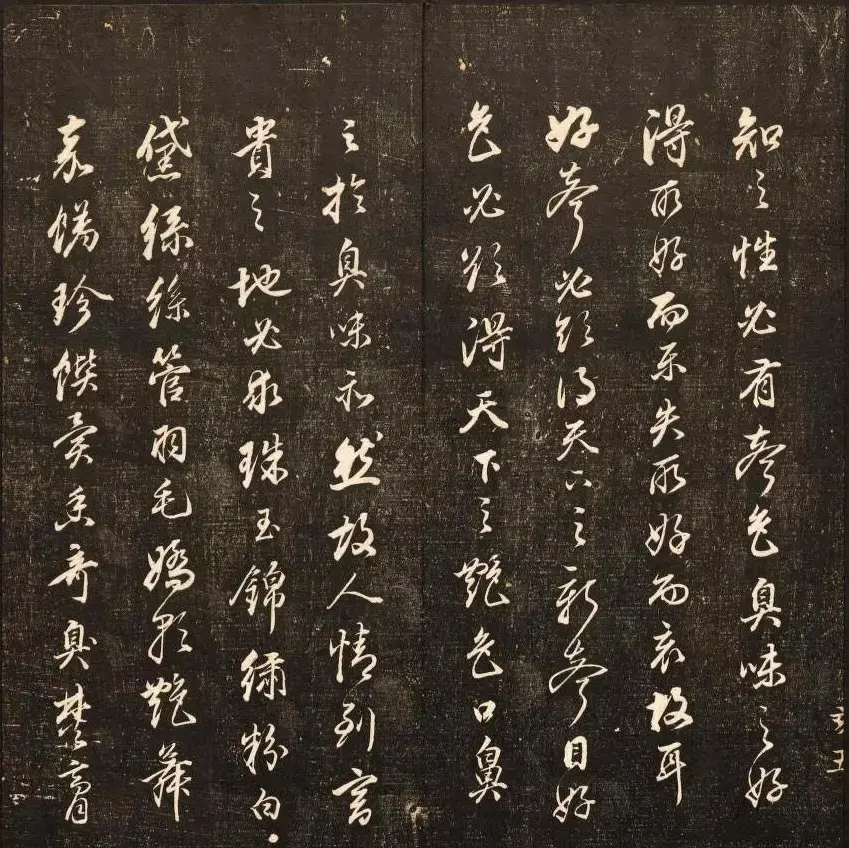 知之性必有聲色臭味之好
得所好而樂失所好而哀故耳
好聲必欲得天下之新聲目好
色必欲得天下之艷色口鼻
之於臭味亦然故人情到富
貴之地必求珠玉錦繡粉白
黛綠絲管羽毛嬌歌艷舞
嘉餚珍饌異香奇臭焚膏